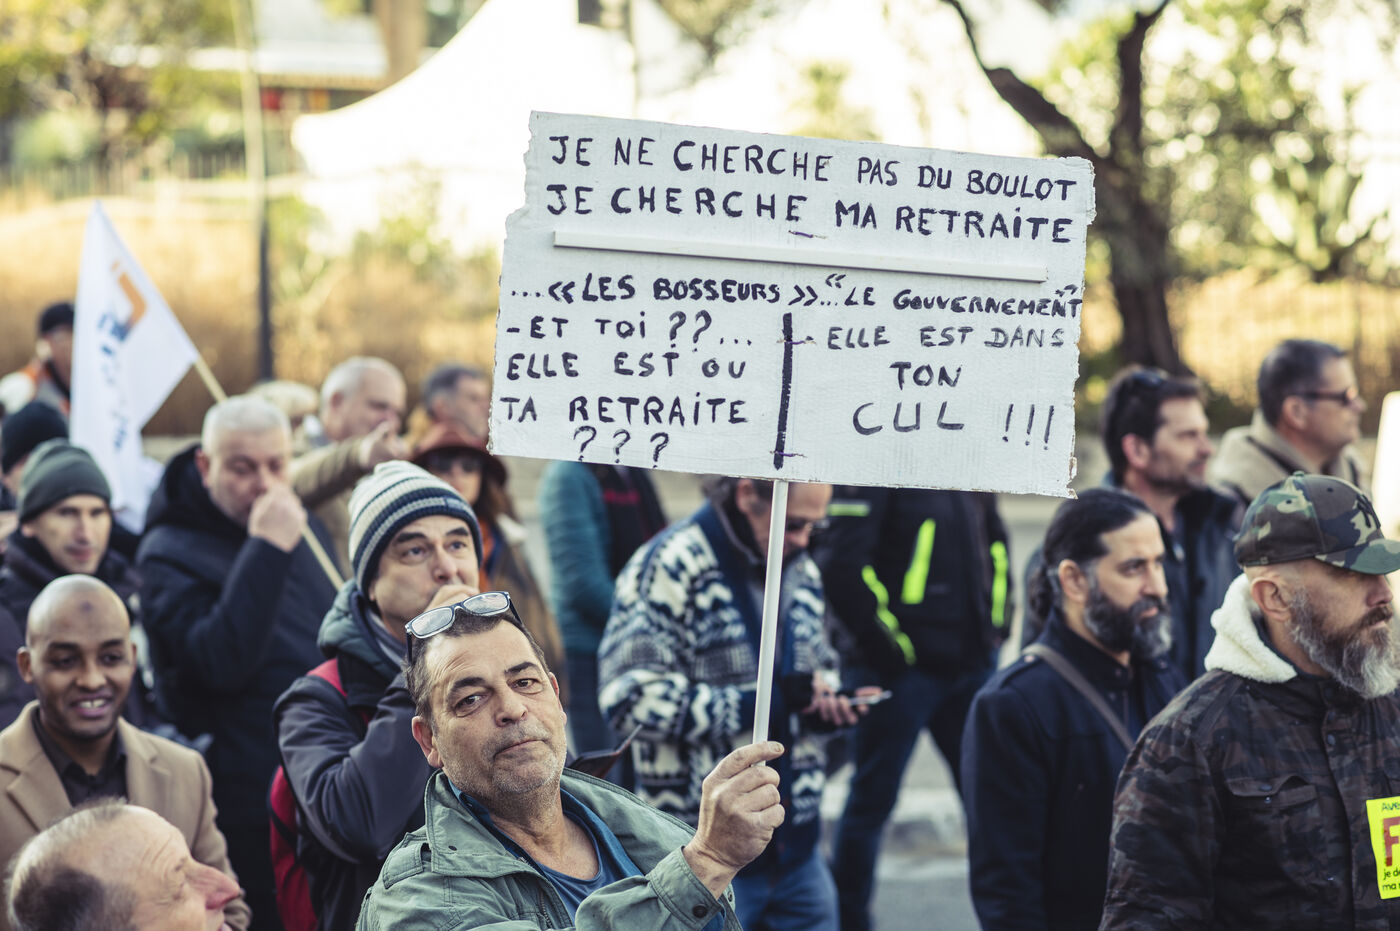 JE NE CHERCHE PAS DU BOULOT
JE CHERCHE MA RETRAITE
...«LES BOSSEURS»
-ET TOI ??...
ELLE EST OU
TA RETRAITE
???
..."LE GOUVERNEMENT"
- ELLE EST DANS
TON
CUL !!!